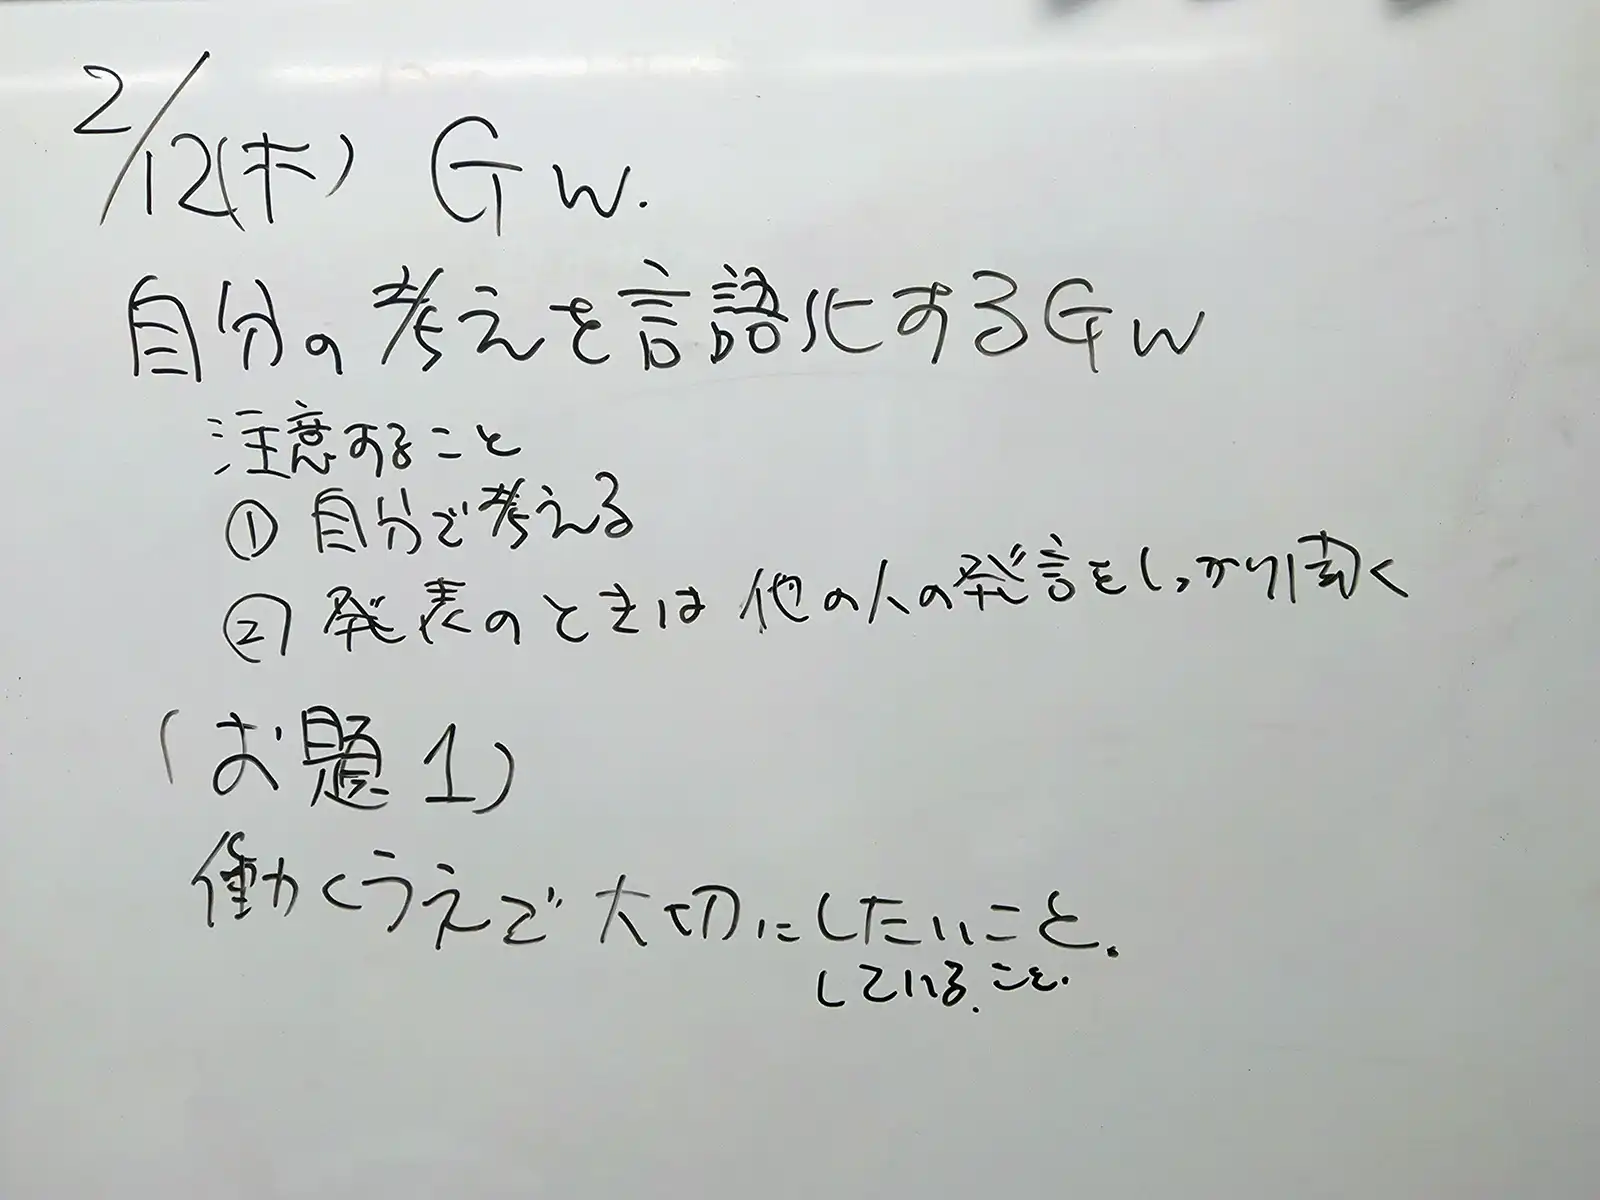 2/12(木) GW.
自分の考えを言語化するGW
注意すること
① 自分で考える
② 発表のときは 他の人の発言をしっかり聞く
(お題1)
働くうえで大切にしたいこと.
している.こと.